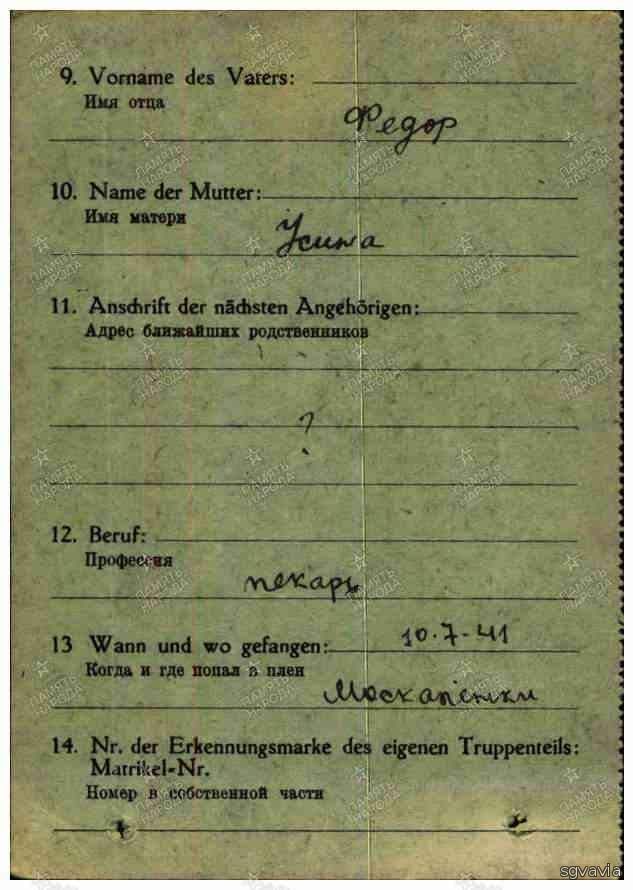 9. Vorname des Vaters:
Имя отца
Федор
10. Name der Mutter:
Имя матери
Усина
11. Anschrift der nächsten Angehörigen:
Адрес ближайших родственников
?
12. Beruf:
Профессия
пекарь
13 Wann und wo gefangen:
10.7-41
Когда и где попал в плен
14. Nr. der Erkennungsmarke des eigenen Truppenteils:
Matrikel-Nr.
Номер в собственной части
ПАМЯТЬ НАРОДА
sgvavia